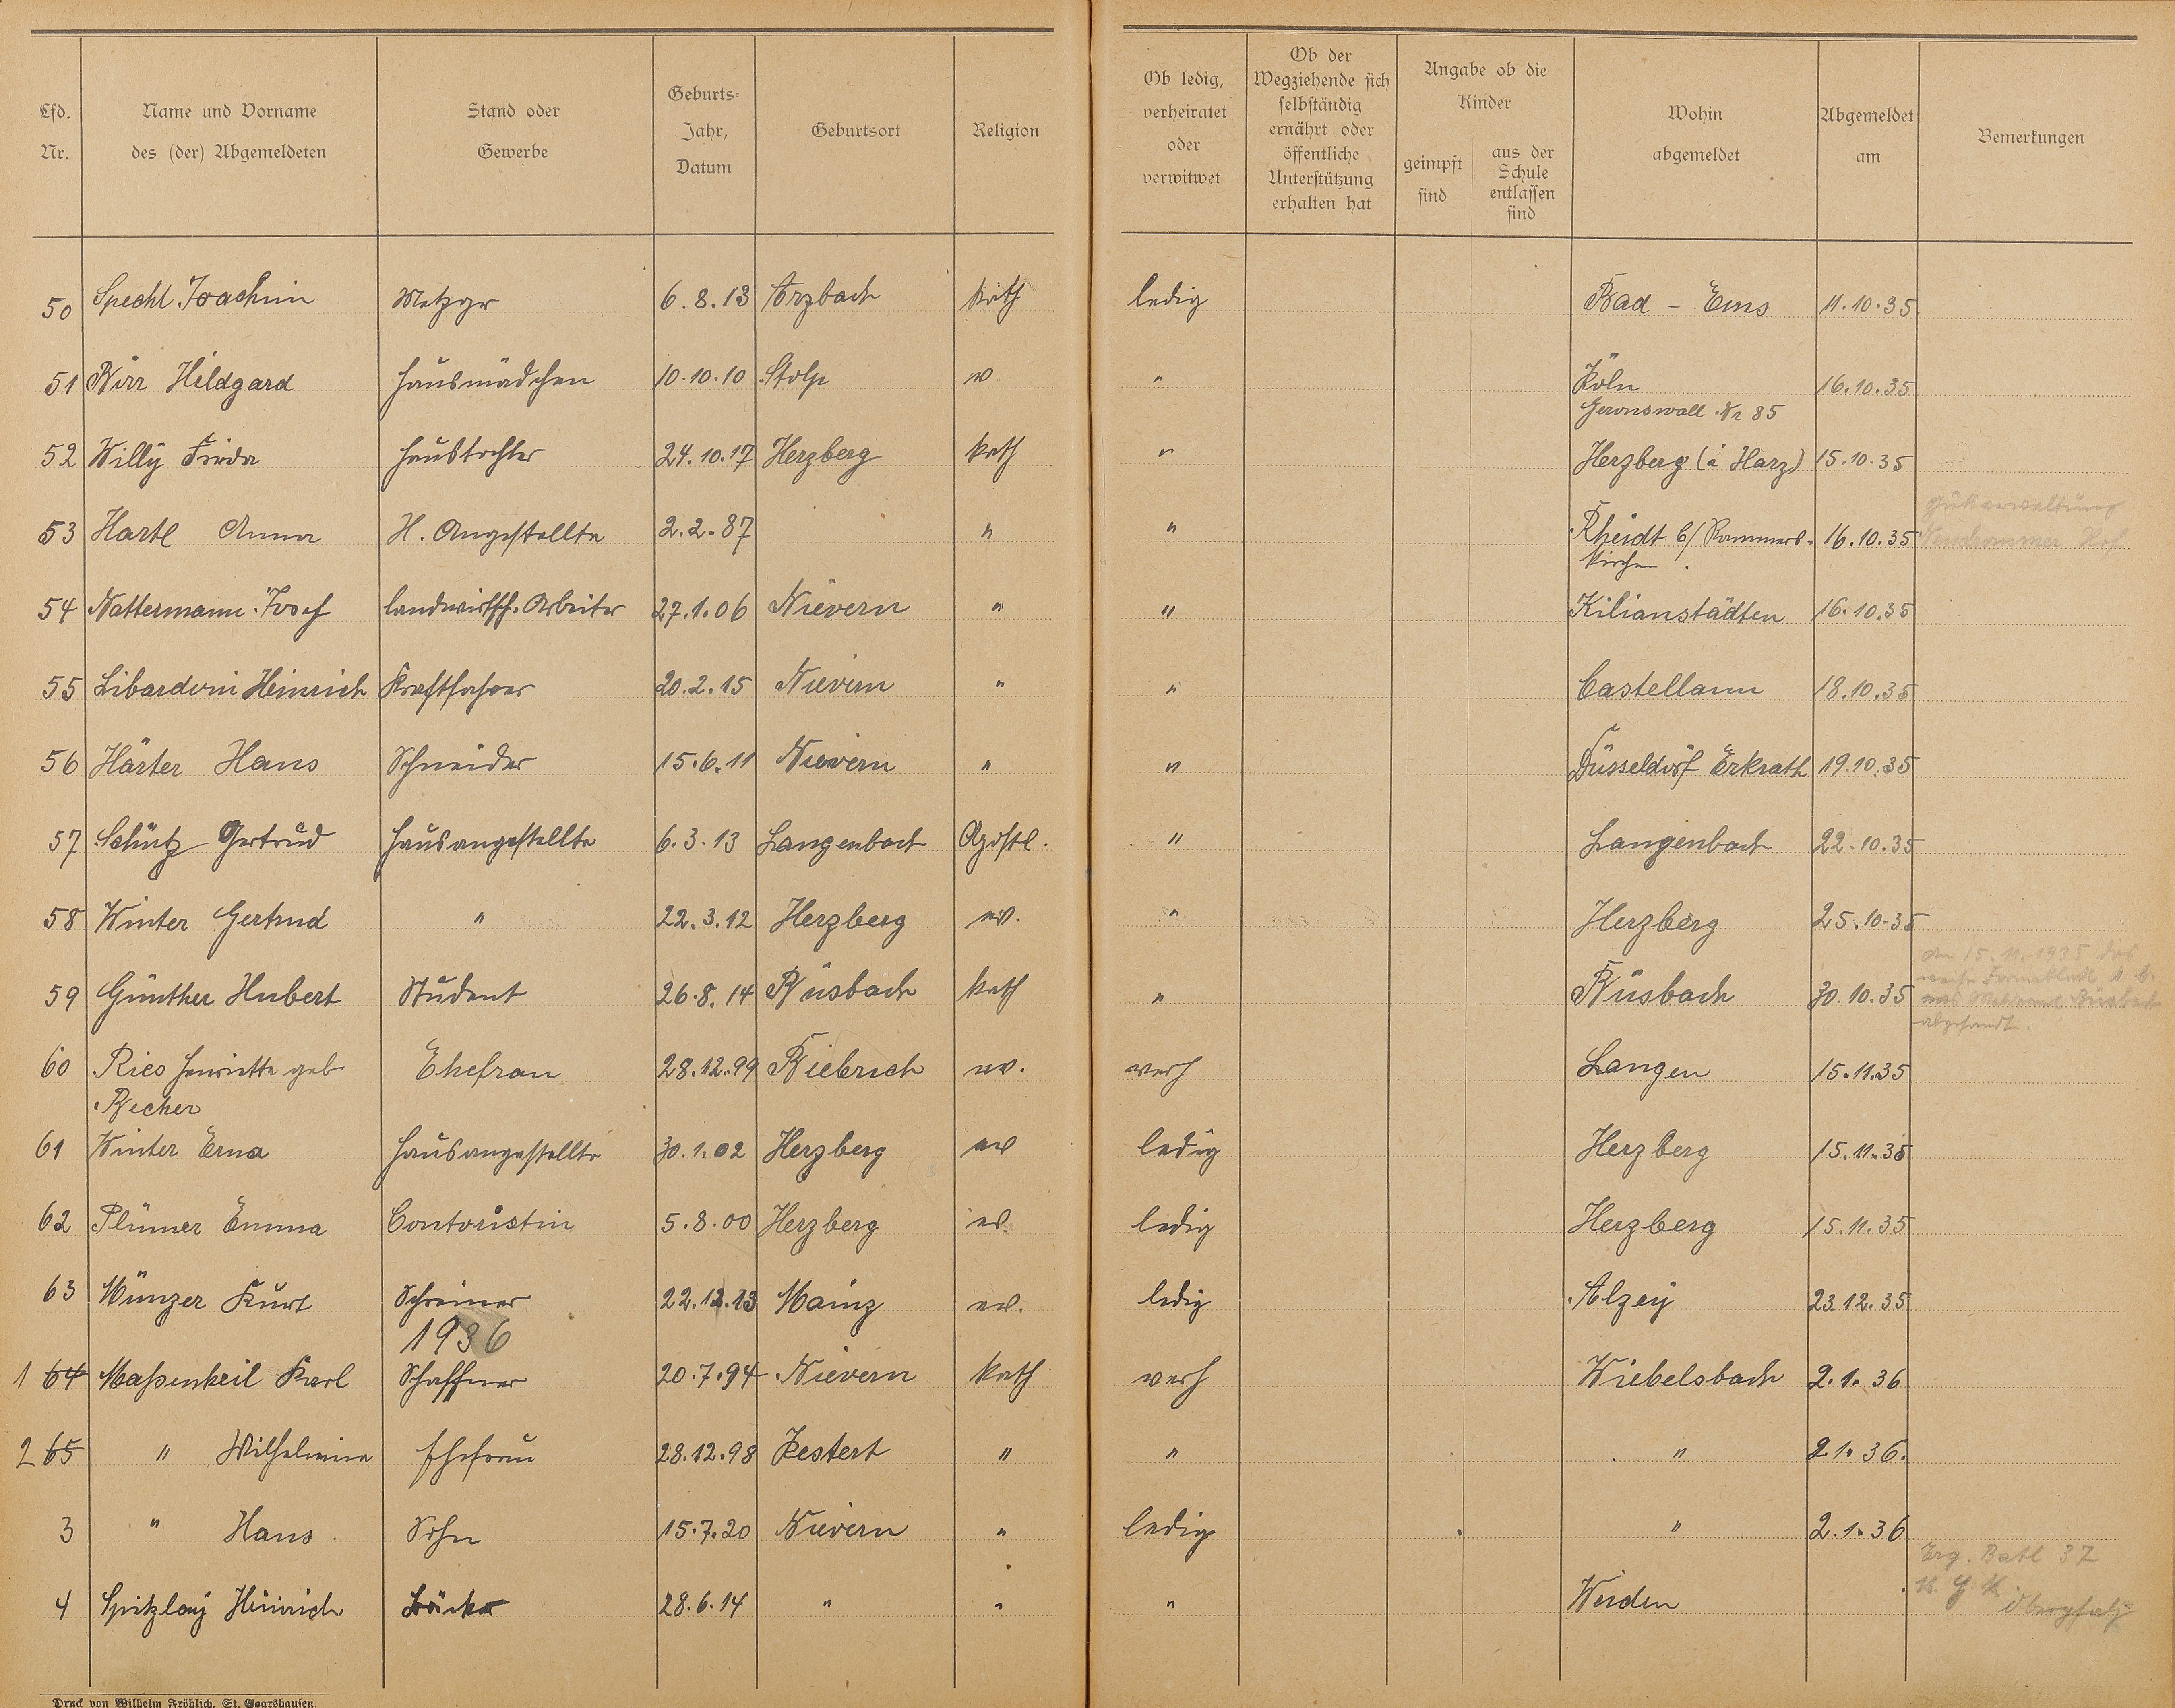 Lfd. Nr.
Name und Vorname des (der) Abgemeldeten
Stand oder Gewerbe
Geburts-Jahr, Datum
Geburtsort
Religion
Ob ledig, verheiratet oder verwitwet
Ob der Wegziehende sich selbständig ernährt oder öffentliche Unterstützung erhalten hat
Angabe ob die Kinder
geimpft sind
aus der Schule entlassen sind
Wohin abgemeldet
Abgemeldet am
Bemerkungen
50 Specht Joachim Metzger 6.8.13 Arzbach kath ledig Bad - Ems 11.10.35
51 Birr Hildgard Hausmädchen 10.10.10 Stolp ev " Köln 16.10.35
Gereonswall Nr 85
52 Willy Frieda Haustochter 24.10.17 Herzberg kath " Herzberg (i Harz) 15.10.35
Gutsverwaltung
53 Hartl Anna H. Angestellte 2.2.87 " " Rheidt b/ Rommers- 16.10.35 Hof
kirchen
54 Nattermann Josef landwirtsch. Arbeiter 27.1.06 Nievern " " Kilianstädten 16.10.35
55 Libardoni Heinrich Kraftfahrer 20.2.15 Nievern " " Castellaun 18.10.35
56 Härter Hans Schneider 15.6.11 Nievern " " Düsseldorf Erkrath 19.10.35
57 Schütz Gertrud Hausangestellte 6.3.13 Langenbach Apostl. " Langenbach 22.10.35
58 Winter Gertrud " 22.3.12 Herzberg ev. " Herzberg 25.10.35
Am 15.11.1935 das
Formblatt 1 b.
59 Günther Hubert Student 26.8.14 Büsbach kath " Büsbach 30.10.35 Büsbach
abgesandt.
60 Ries Henriette geb. Ehefrau 28.12.99 Biebrich ev. verh Langen 15.11.35
Becher
61 Winter Erna Hausangestellte 30.1.02 Herzberg ev ledig Herzberg 15.11.35
62 Plümer Emma Contoristin 5.8.00 Herzberg ev. ledig Herzberg 15.11.35
63 Münzer Kurt Schreiner 22.12.13 Mainz ev. ledig Alzey 23.12.35
1936
1 64 Maßenkeil Karl Schaffner 20.7.94 Nievern kath verh Wiebelsbach 2.1.36
2 65 " Wilhelmine Ehefrau 28.12.98 Kestert " " " 2.1.36.
3 " Hans Sohn 15.7.20 Nievern " ledig " 2.1.36
Erg. Batl 37
4 Spitzlay Heinrich Bäcker 28.6.14 " " " Weiden Oberpfalz
Druck von Wilhelm Fröhlich, St. Goarshausen.